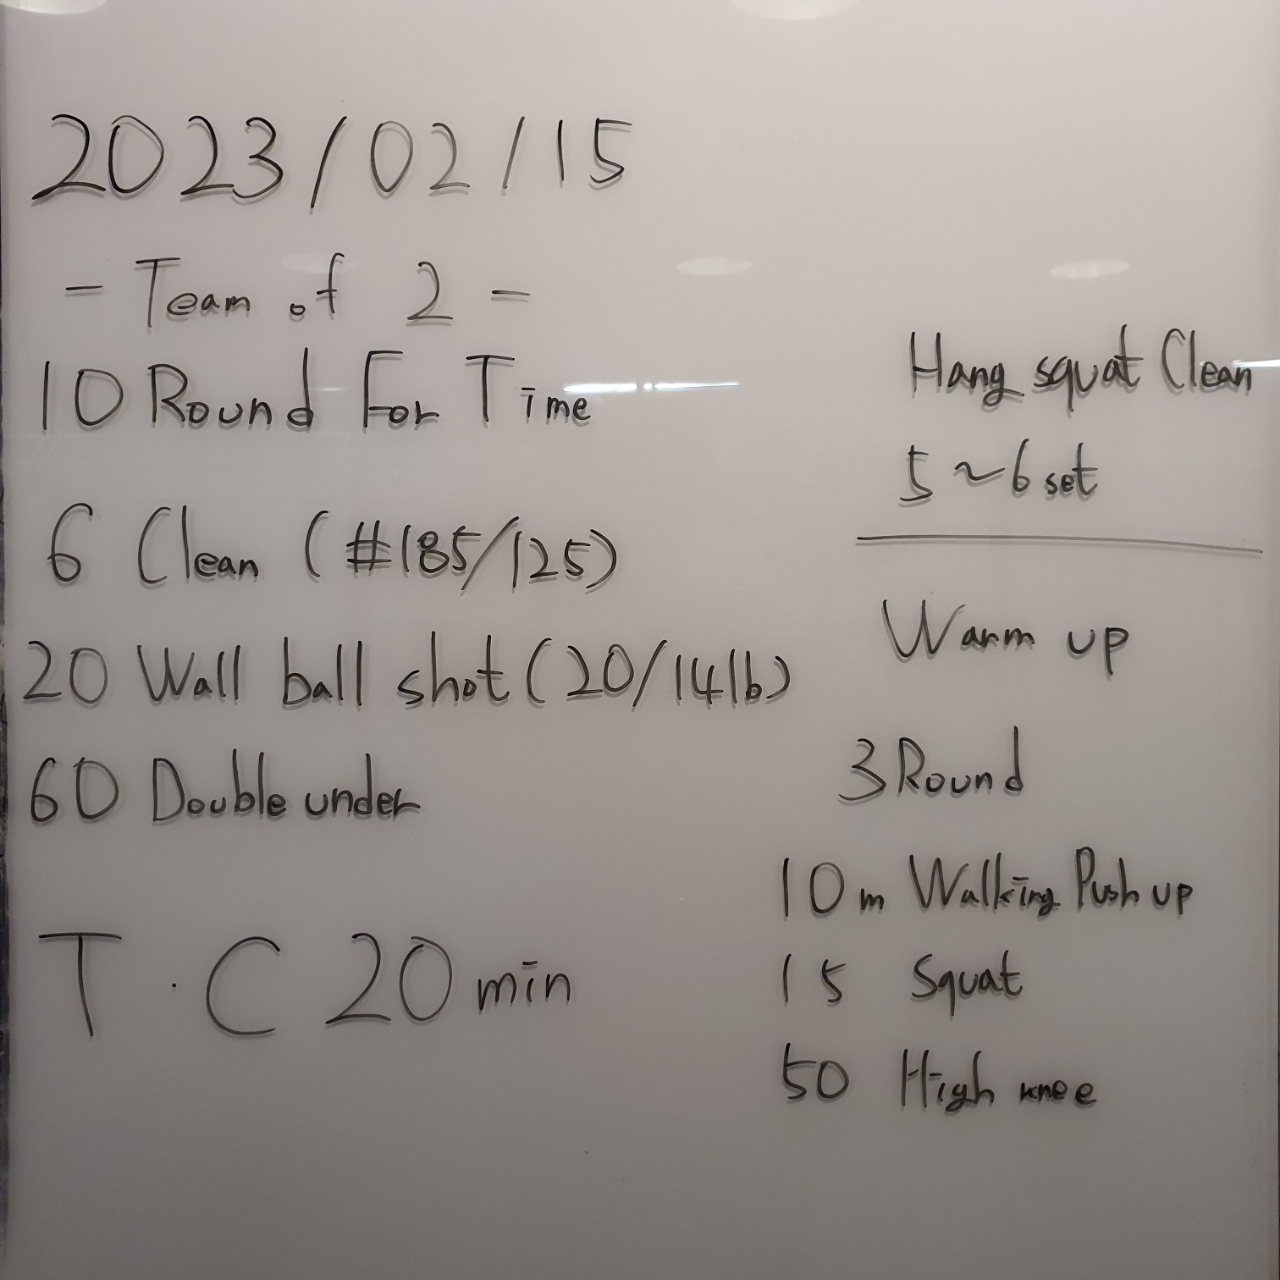 2023/02/15
- Team of 2 -
10 Round For Time
6 Clean (#185/125)
20 Wall ball shot (20/14lb)
60 Double under
T.C 20min
Hang squat Clean
5~6 set
Warm up
3 Round
10m Walking Push up
15 Squat
50 High knee